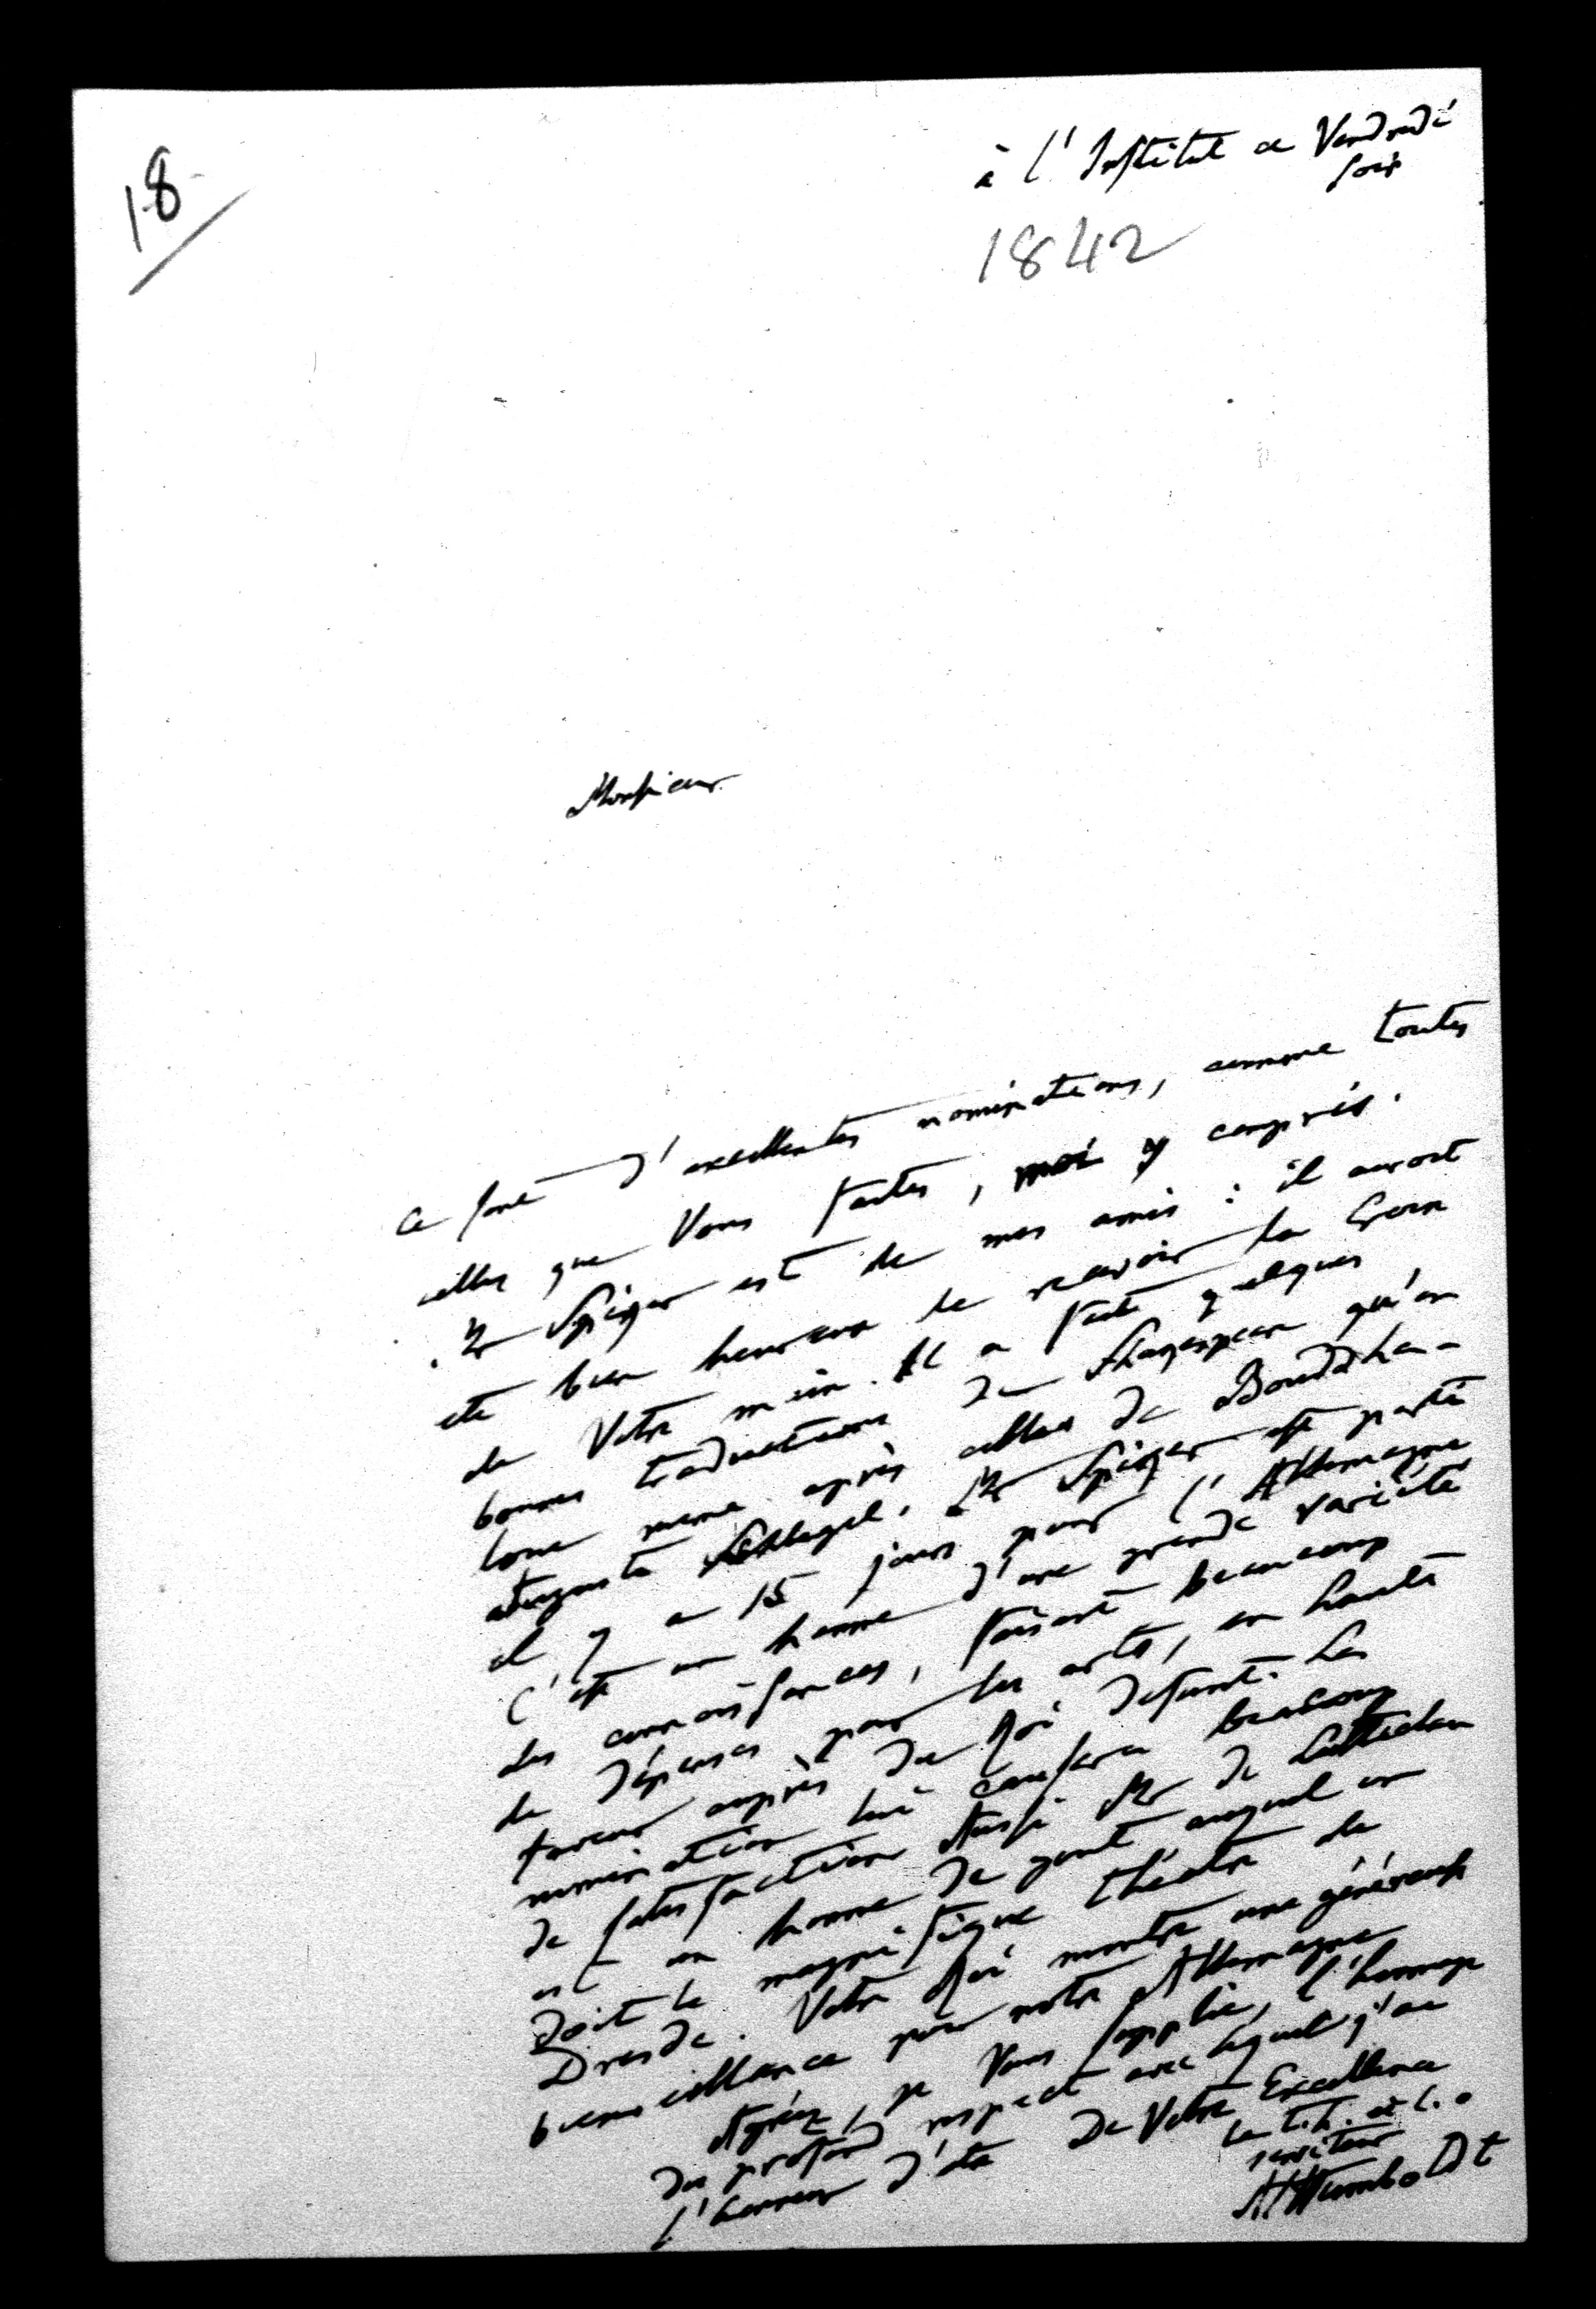 18
à l'Institut ce Vendredi
soir
1842
Monsieur
Ce sont d'excellentes nominations, comme toutes
celles que Vous faites, moi y compris.
Mr Spiker est de mes amis : il auroit
été bien heureux de recevoir la Croix
de Votre main. Il a fait quelques
bonnes traductions de Shakespear qu'on
loue meme après celles de
Auguste Schlegel. Mr Spiker est parti
il y a 15 jours pour l'Allemagne
C'est un homme d'une grande variété
des connoissances, faisant beaucoup
de dépenses pour les arts, en haute
faveur auprès du Roi defunt. La
nomination lui causera beaucoup
de satisfaction Aussi Mr de Luttichau
est un homme de gout auquel on
doit le magnifique théatre de
Dresde. Votre Roi montre une généreuse
bienveillance pour notre Allemagne
Agréez, je Vous supplie, l'hommage
du profond respect avec lequel j'ai
l'honneur d'etre De Votre Excellence
le t. h. et t. o
serviteur
AHumboldt